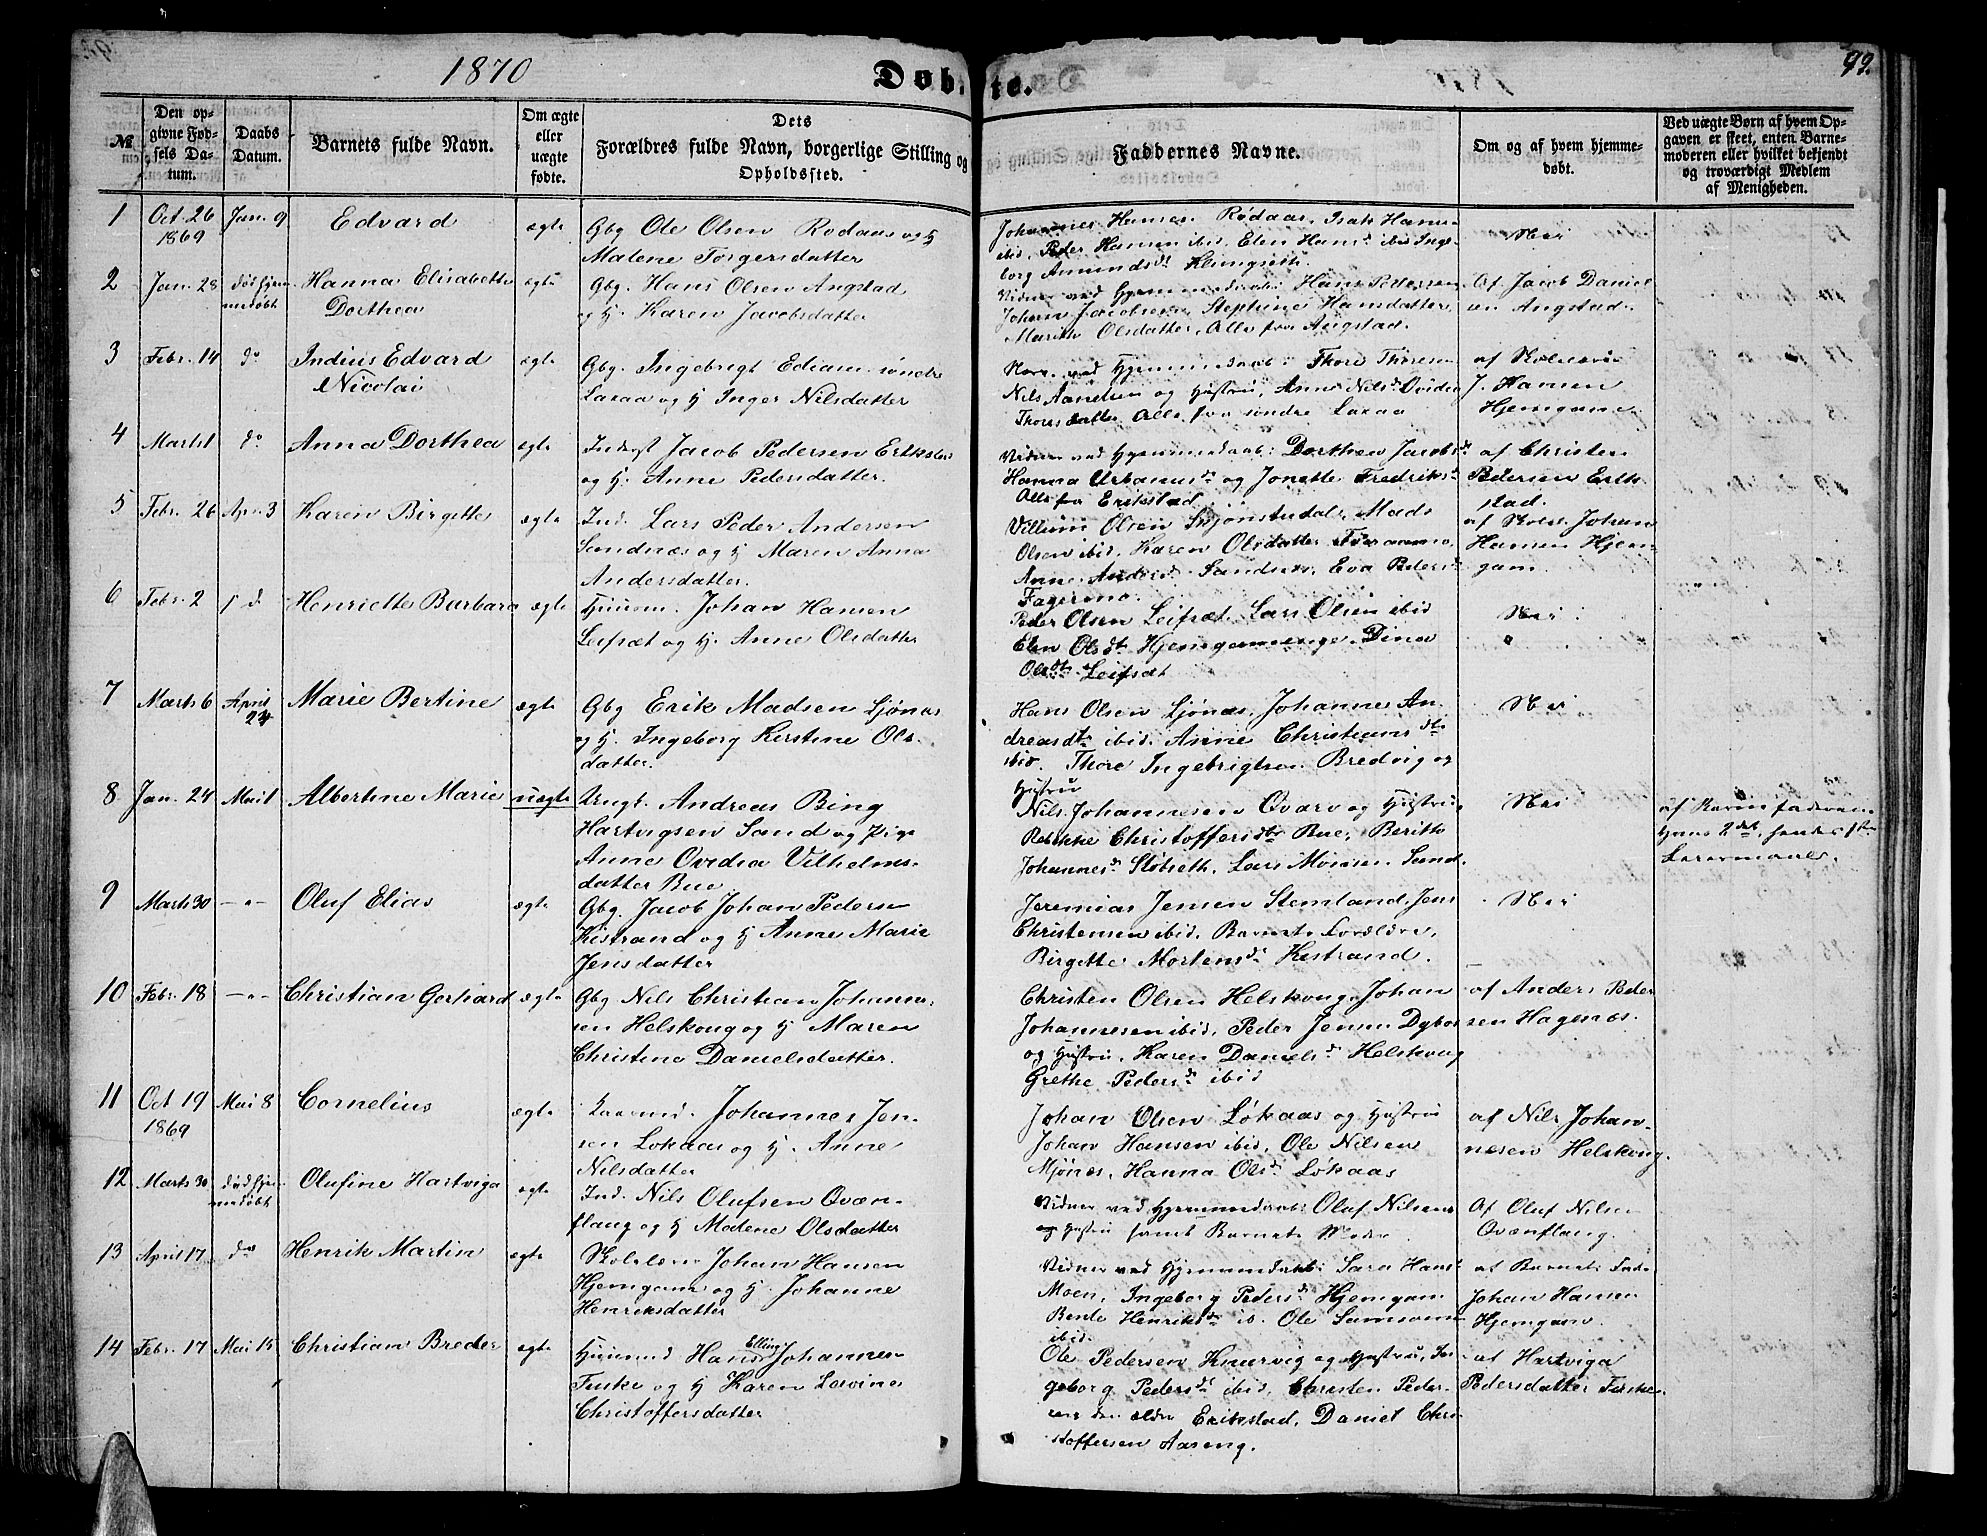 1870
Døbte.
93.
№
Den opgivne Fødsels Datum.
Daabs Datum.
Barnets fulde Navn.
Om ægte eller uægte fødte.
Dets Forældres fulde Navn, borgerlige Stilling og Opholdssted.
Faddernes Navne.
Om og af hvem hjemmedøbt.
Ved uægte Børn af hvem Opgaven er skeet, enten Barnemoderen eller hvilket bekjendt og troværdigt Medlem af Menigheden.
1
Oct. 26
1869
Jan. 9
Edvard
ægte
Gbg Ole Olsen Rødaas og Hj
Malene Torgersdatter
Johannes Hansen Rødaas, Isak Hansen
ibid, Peder Hansen ibid, Elen Hansd. ibid Inge-
borg Amundsd. Klungseth
Nei
2
Jan. 28
død hjem-
medøbt
Hanna Elisabeth
Dorthea
ægte
Gbg. Hans Olsen Angstad
og Hj. Karen Jacobsdatter
Vidner ved Hjemmedaab: Hans Pettersen
Johan Jacobsen, Stephine Hansdatter
Marith Olsdatter, Alle fra Angstad.
Af Jacob Daniel
sen Angstad.
3
Febr. 14
do
Indius Edvard
Nicolai
ægte
Gbg. Ingebrigt Ediam søndre
Laxaa og Hj Inger Nilsdatter
ved Hjemmedaab: Thore Thoresen
Nils Aanetsen og Hustru, Anne Nilsd. Ovidia
Thoresdatter, Alle fra søndre Laxaa
af Skolelærer
J. Hansen
Hjemgam
4
Marts 1
do
Anna Dorthea
ægte
Inderst Jacob Pedersen Erikstad
og Hj. Anne Pedersdatter.
Vidner ved Hjemmedaab: Dorthea Jacobsd.
Hanna Urbanusd. og Jonette Fredriksd.
Alle fra Erikstad
af Christen
Pedersen Erik-
stad.
5
Febr. 26
Apr. 3
Karen Birgitte
ægte
Ind. Lars Peder Andersen
Sandnæs og Hj Maren Anna
Andersdatter.
Villum Olsen Skjønstudal, Mads
Olsen ibid, Karen Olsdatter
Anne Andersd. Sandnæs, Eva Pedersd.
Fagermo.
af Skolel. Johan
Hansen Hjem-
gam.
6
Febr. 2
Henriette Barbara
ægte
Huusm. Johan Hansen
Leifsæt og Hj. Anne Olsdatter
Peder Olsen Leifsæt. Lars Olsen ibid
Elen Olsdt Hjemgammenge. Dina
Olsdtr. Leifsæt
Nei
7
Marts 6
April
24
Marie Bertine
ægte
Gbg Erik Madsen Ljønæs
og Hj. Ingeborg Kirstine Ols-
datter.
Hans Olsen Ljønæs, Johannes An-
dreasdtr ibid, Anne Christiansdtr
ibid. Thore Ingebrigtsen Bredvig og
Hustru
Nei
8
Jan. 24
Mai 1
Albertine Marie
uægte
Ungk. Andreas Bing
Hartvigsen Sand og Pige
Anne Ovidia Vilhelms-
datter Bue
Nils Johannesen Qvarv og Hustru,
Rebekke Christoffersdtr Bue, Berith
Johannesd. Støbseth. Lars Monsen Sand.
Nei
af Barnefaderen
hans 2det, hendes 1ste
Leiermaal.
9
Marts 30
— " —
Oluf Elias
ægte
Gbg. Jacob Johan Pedersen
Kistrand og Hj Anne Marie
Jensdatter
Jeremias Jensen Stemland, Jens
Christensen ibid, Barnets Forældre,
Birgitte Mortensd. Kistrand.
Nei
10
Febr. 18
— " —
Christian Gerhard
ægte
Gbg Nils Christian Johanne-
sen Helskoug og Hj Maren
Christine Danielsdatter.
Christen Olsen Helskoug. Johan
Johannesen ibid, Peder Jensen
og Hustru, Karen Danielsd. Helskoug
Grethe Pedersd. ibid
af Anders Peder
sen Hagenæs.
11
Oct 19
1869
Mai 8
Cornelius
ægte
Johannes Jen-
sen Løkaas og Hj. Anne
Nilsdatter
Johan Olsen Løkaas og Hustru
Johan Hansen ibid, Ole Nilsen
Mjønæs, Hanna Olsd. Løkaas
af Nils Johan-
nesen Helskoug.
12
Marts 30
død hjem-
medøbt
Olufine Hartviga
ægte
Ind. Nils Olufsen Qvæn-
flaug og Hj Malene Olsdatter
Vidner ved Hjemmedaab: Oluf Nilsens
og Hustru samt Barnets Moder.
Af Oluf Nilsen
Qvænflaug.
13
April 17
do
Henrik Martin
ægte
Skolelærer Johan Hansen
Hjemgam og Hj Johanne
Henriksdatter
Vidner ved Hjemmedaab: Sara Hansd
Moen, Ingeborg Pedersd. Hjemgam
Bente Henriksd. ib. Ole Samsonsen
ibid.
af Barnets Fader
Johan Hansen
Hjemgam.
14
Febr. 17
Mai 15
Christian Breder
ægte
Huusmd Hans Elling Johannes
Fuske og Hj Karen Lovina
Christoffersdatter
Ole Pedersen Knurvig og Hustru, In-
geborg Pedersd. ibid, Christen Peder-
sen den ældre Erikstad, Daniel Chri-
stoffersen Aaseng.
af Hartviga
Pedersdatter Fuske